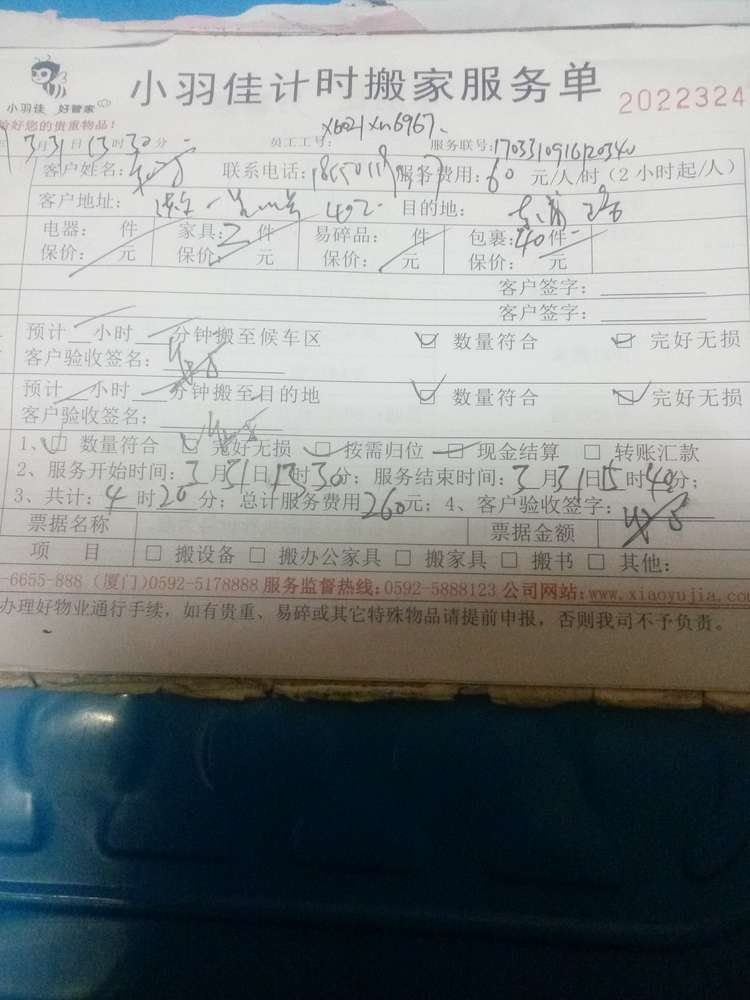 小羽佳计时搬家服务单
小羽佳 好管家
2022324
好您的贵重物品!
3月31日13时30分 员工工号: X6021 Xm6967 服务联号:170331091612034
客户姓名: 联系电话: 服务费用:60元/人/时(2小时起/人)
客户地址: 402 目的地:
电器: 件 家具:2件 易碎品: 件 包裹:40件
保价: 元 保价: 元 保价: 元 保价: 元
客户签字:
客户签字:
预计 小时 分钟搬至候车区 数量符合 完好无损
客户验收签名:
预计 小时 分钟搬至目的地 数量符合 完好无损
客户验收签名:
1、 数量符合 完好无损 按需归位 现金结算 转账汇款
2、服务开始时间:3月31日13时30分;服务结束时间:3月31日15时40分;
3、共计:4时20分;总计服务费用260元;4、客户验收签字:
票据名称 票据金额
项 目 搬设备 搬办公家具 搬家具 搬书 其他:
-6655-888(厦门)0592-5178888 服务监督热线:0592-5888123 公司网站:www.xiaoyujia.com
办理好物业通行手续,如有贵重、易碎或其它特殊物品请提前申报,否则我司不予负责。